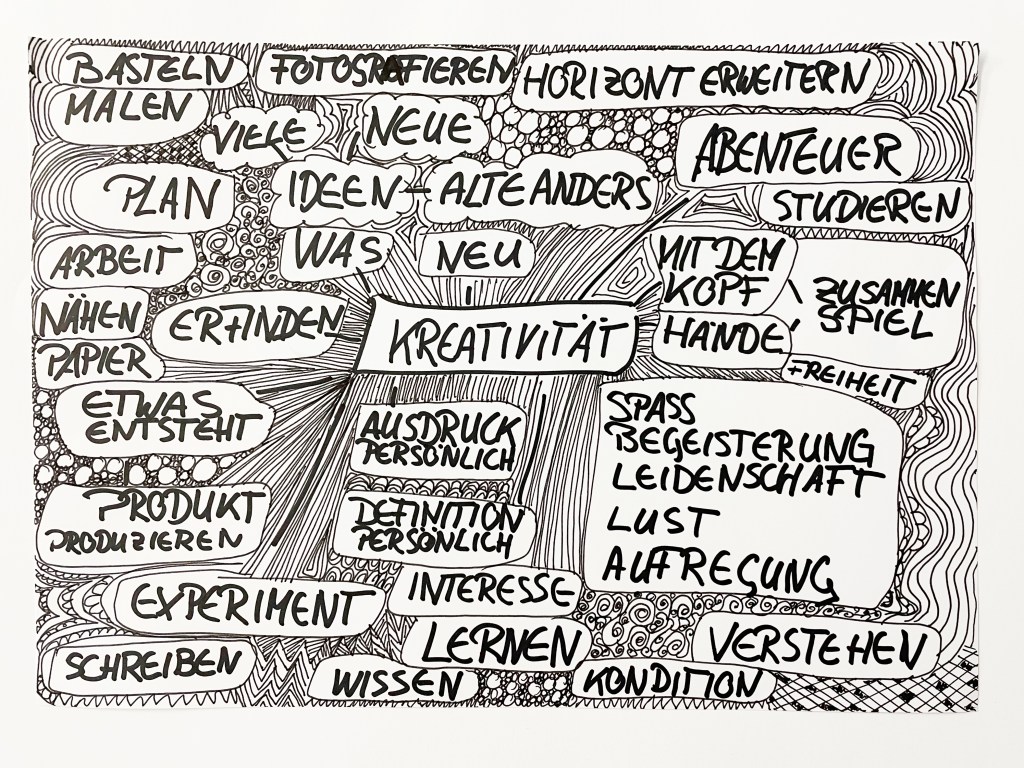 BASTELN
FOTOGRAFIEREN
HORIZONT ERWEITERN
MALEN
VIELE
NEUE
ABENTEUER
PLAN
IDEEN - ALTE ANDERS
STUDIEREN
ARBEIT
WAS
NEU
MIT DEM
KOPF
HÄNDE
ZUSAMMEN
SPIEL
NÄHEN
ERFINDEN
KREATIVITÄT
PAPIER
FREIHEIT
ETWAS
ENTSTEHT
AUSDRUCK
PERSÖNLICH
SPASS
BEGEISTERUNG
LEIDENSCHAFT
LUST
AUFREGUNG
PRODUKT
PRODUZIEREN
DEFINITION
PERSÖNLICH
EXPERIMENT
INTERESSE
LERNEN
VERSTEHEN
SCHREIBEN
WISSEN
KONDITION